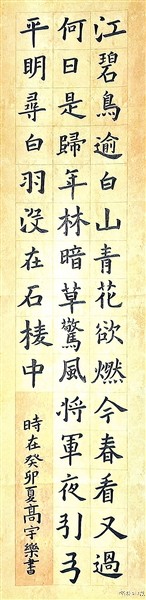 江碧鳥逾白山青花欲燃今春看又過
何日是歸年林暗草驚風將軍夜引弓
平明尋白羽沒在石棱中
時在癸卯夏高宇樂書